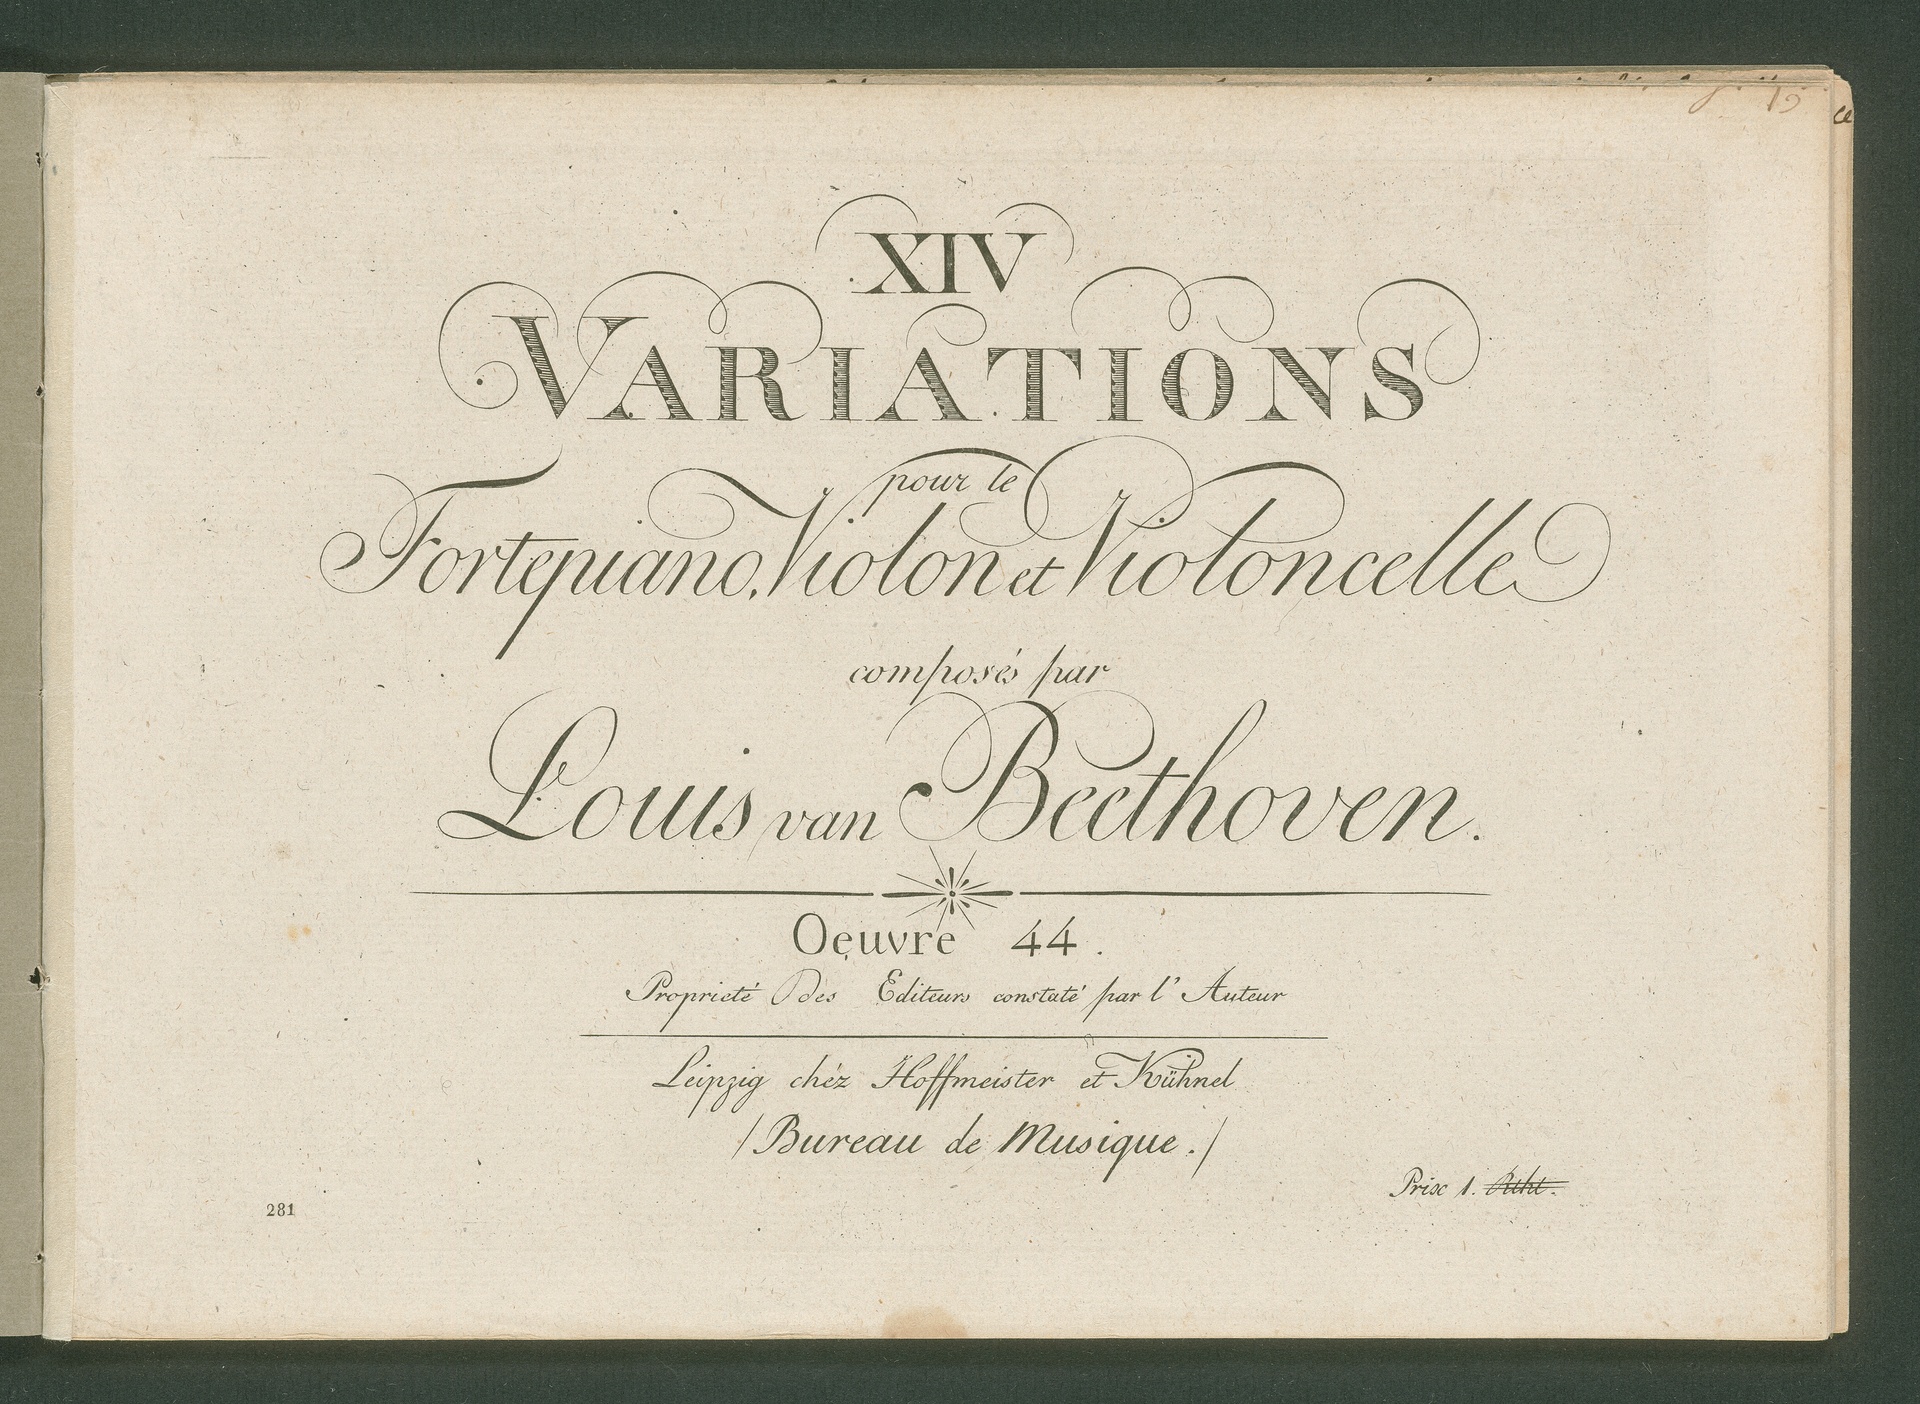 15
ce
XIV
VARIATIONS
pour le
Fortepiano, Violon et Violoncelle
composés par
Louis van Beethoven.
Oeuvre 44.
Proprieté des Editeurs constaté par l' Auteur
Leipzig chéz Hoffmeister et Kühnel
/Bureau de Musique./
Prix 1. Rtht.
281